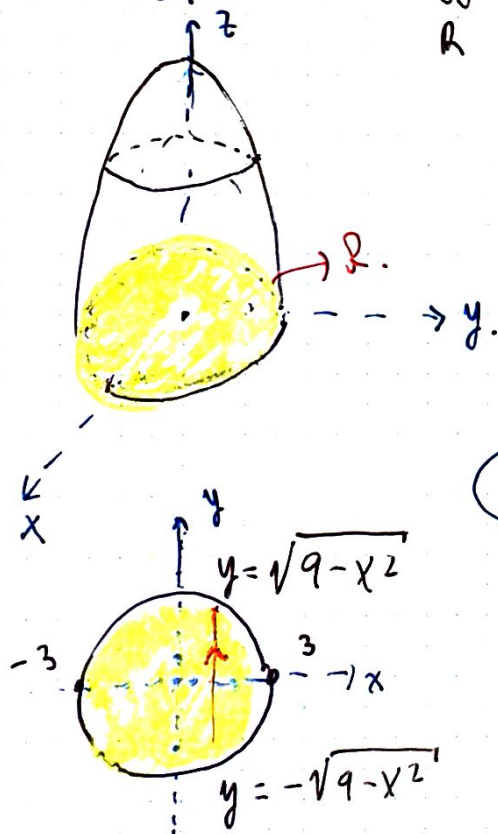 z
R
R.
y.
x
y
y = √(9-x²)
-3
3
x
y = -√(9-x²)